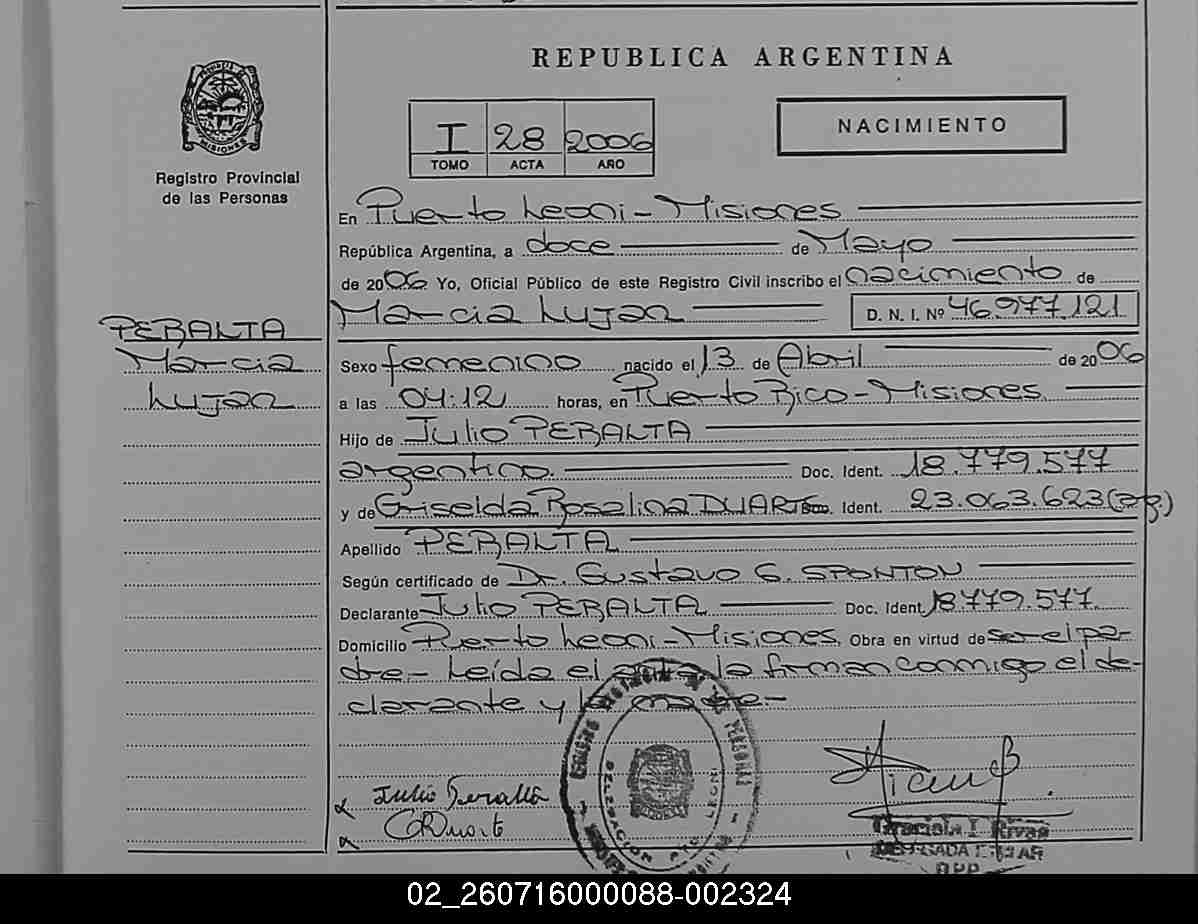 REPUBLICA ARGENTINA
PROVINCIA DE
MISIONES
Registro Provincial
de las Personas
I 28 2006
TOMO ACTA AÑO
NACIMIENTO
En Puerto Leoni - Misiones
República Argentina, a doce de Mayo
de 2006 Yo, Oficial Público de este Registro Civil inscribo el nacimiento de
Marcia Lujan D. N. I. Nº 46.977.121
PERALTA
Marcia
Lujan
Sexo femenino nacido el 13 de Abril de 2006
a las 04:12 horas, en Puerto Rico - Misiones
Hijo de Julio PERALTA
argentino. Doc. Ident. 18.779.577
y de Griselda Rosalina DUARTE Doc. Ident. 23.063.623
Apellido PERALTA
Según certificado de Dr. Gustavo G. SPONTON
Declarante Julio PERALTA Doc. Ident. 18.779.577.
Domicilio Puerto Leoni - Misiones. Obra en virtud de ser el pa-
dre - Leída el acta la firman conmigo el de-
clarante y la madre -
Julio Peralta
GRDuarte
DELEGACION PTO LEONI
Graciela I Rivas
DELEGADA TITULAR
RPP
02_260716000088-002324